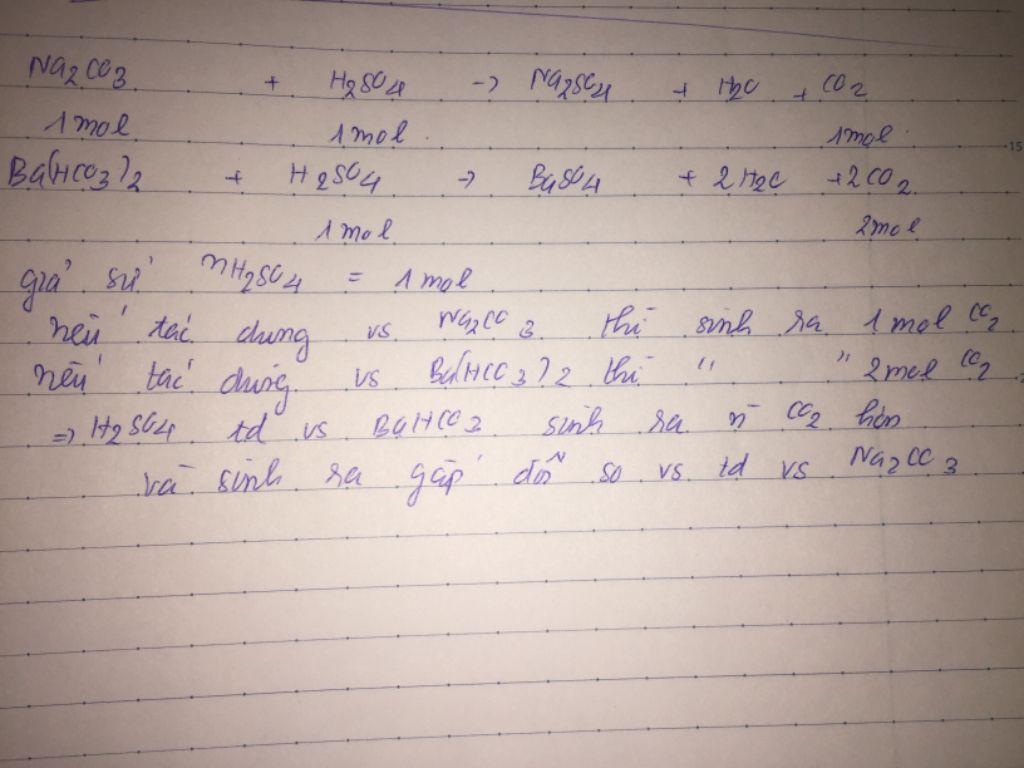 Na2CO3 + H2SO4 -> Na2SO4 + H2O + CO2
1 mol 1 mol 1 mol
Ba(HCO3)2 + H2SO4 -> BaSO4 + 2H2O + 2CO2
1 mol 2 mol
giả sử nH2SO4 = 1 mol
nếu tác dụng vs Na2CO3 thì sinh ra 1 mol CO2
nếu tác dụng vs Ba(HCO3)2 thì " " 2 mol CO2
=> H2SO4 td vs BaHCO3 sinh ra n CO2 hơn
và sinh ra gấp đôi so vs td vs Na2CO3
15